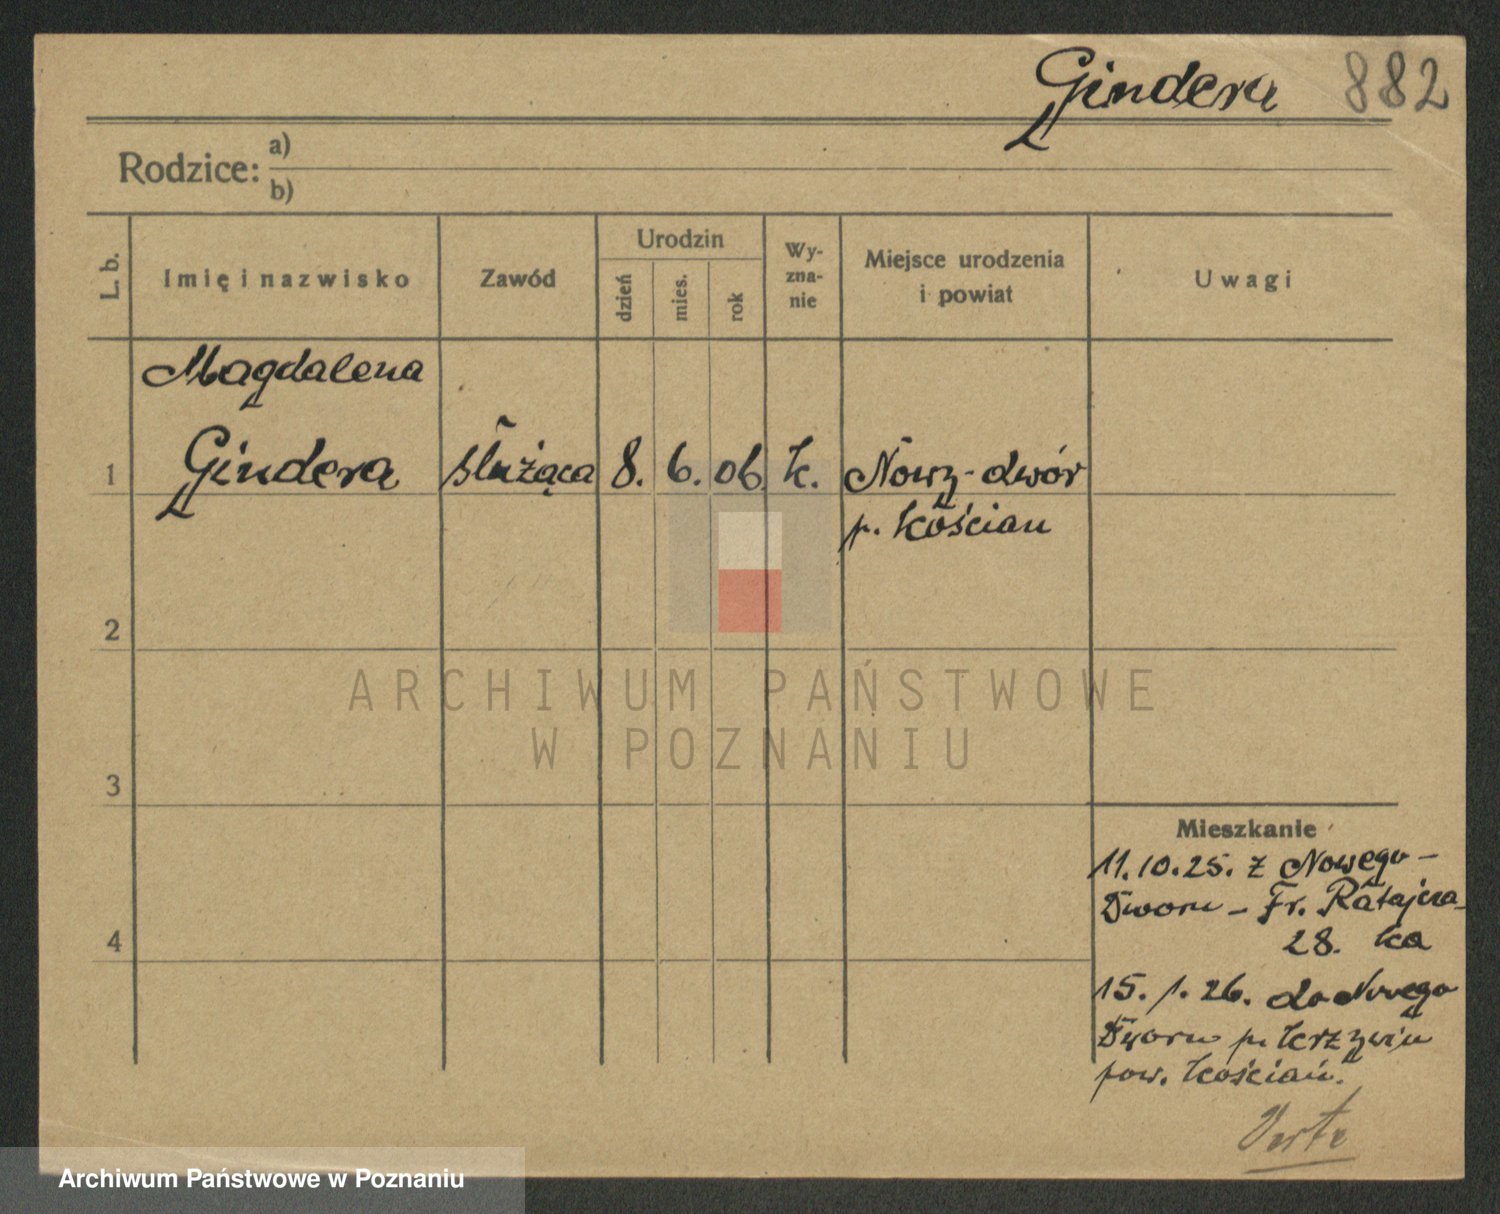 Gindera 882
Rodzice: a)
b)
L. b. Imię i nazwisko Zawód Urodzin dzień mies. rok Wy-zna-nie Miejsce urodzenia i powiat Uwagi
Magdalena
1 Gindera służąca 8. 6. 06. k. Nowy-dwór
p. Kościan
2
ARCHIWUM PAŃSTWOWE
W POZNANIU
3
Mieszkanie
11.10.25. z Nowego-
Dworu - Fr. Ratajcza-
4 28. ka
15. 1. 26. do Nowego
Dworu p. Krzywiń
pow. Kościań.
Verte
Archiwum Państwowe w Poznaniu